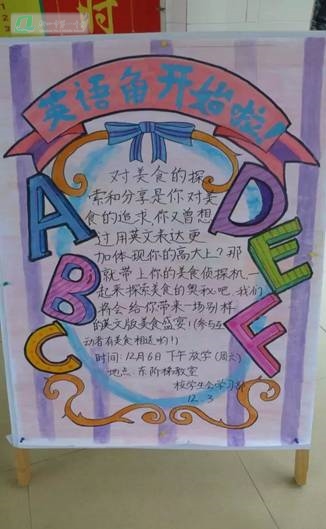 英语角开始啦!
A
B
C
D
E
F
对美食的探
索和分享是你对美
食的追求,你又曾想
过用英文表达更
加体现你的高大上?那
就带上你的美食侦探机,一
起来探索美食的奥秘吧,我们
将会给你带来一场别样
的英文版美食盛宴!(参与互
动者有美食相送哟!)
时间:12月6日 下午 放学(周六)
地点:东阶梯教室
校学生会学习部
12.3